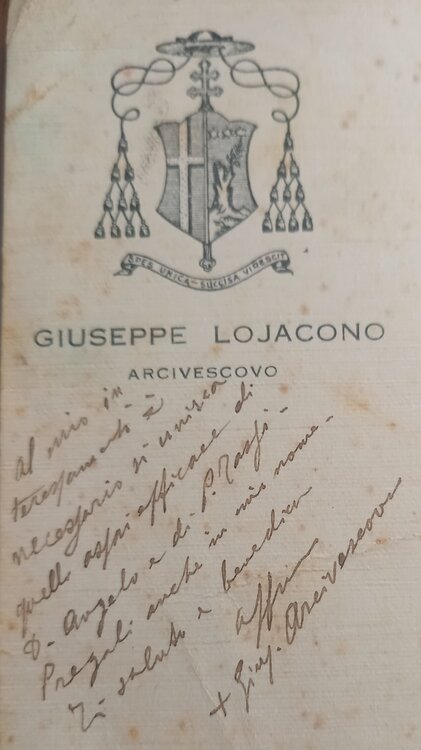 SPES UNICA - SUCCISA VIRESCIT
GIUSEPPE LOJACONO
ARCIVESCOVO
Al mio in
teressamento è
necessario si unisca
quello assai efficace di
D. Angelo e di P.
Pregali anche in mio nome.
Ti saluto e benedico
+ Gius. Arcivescovo